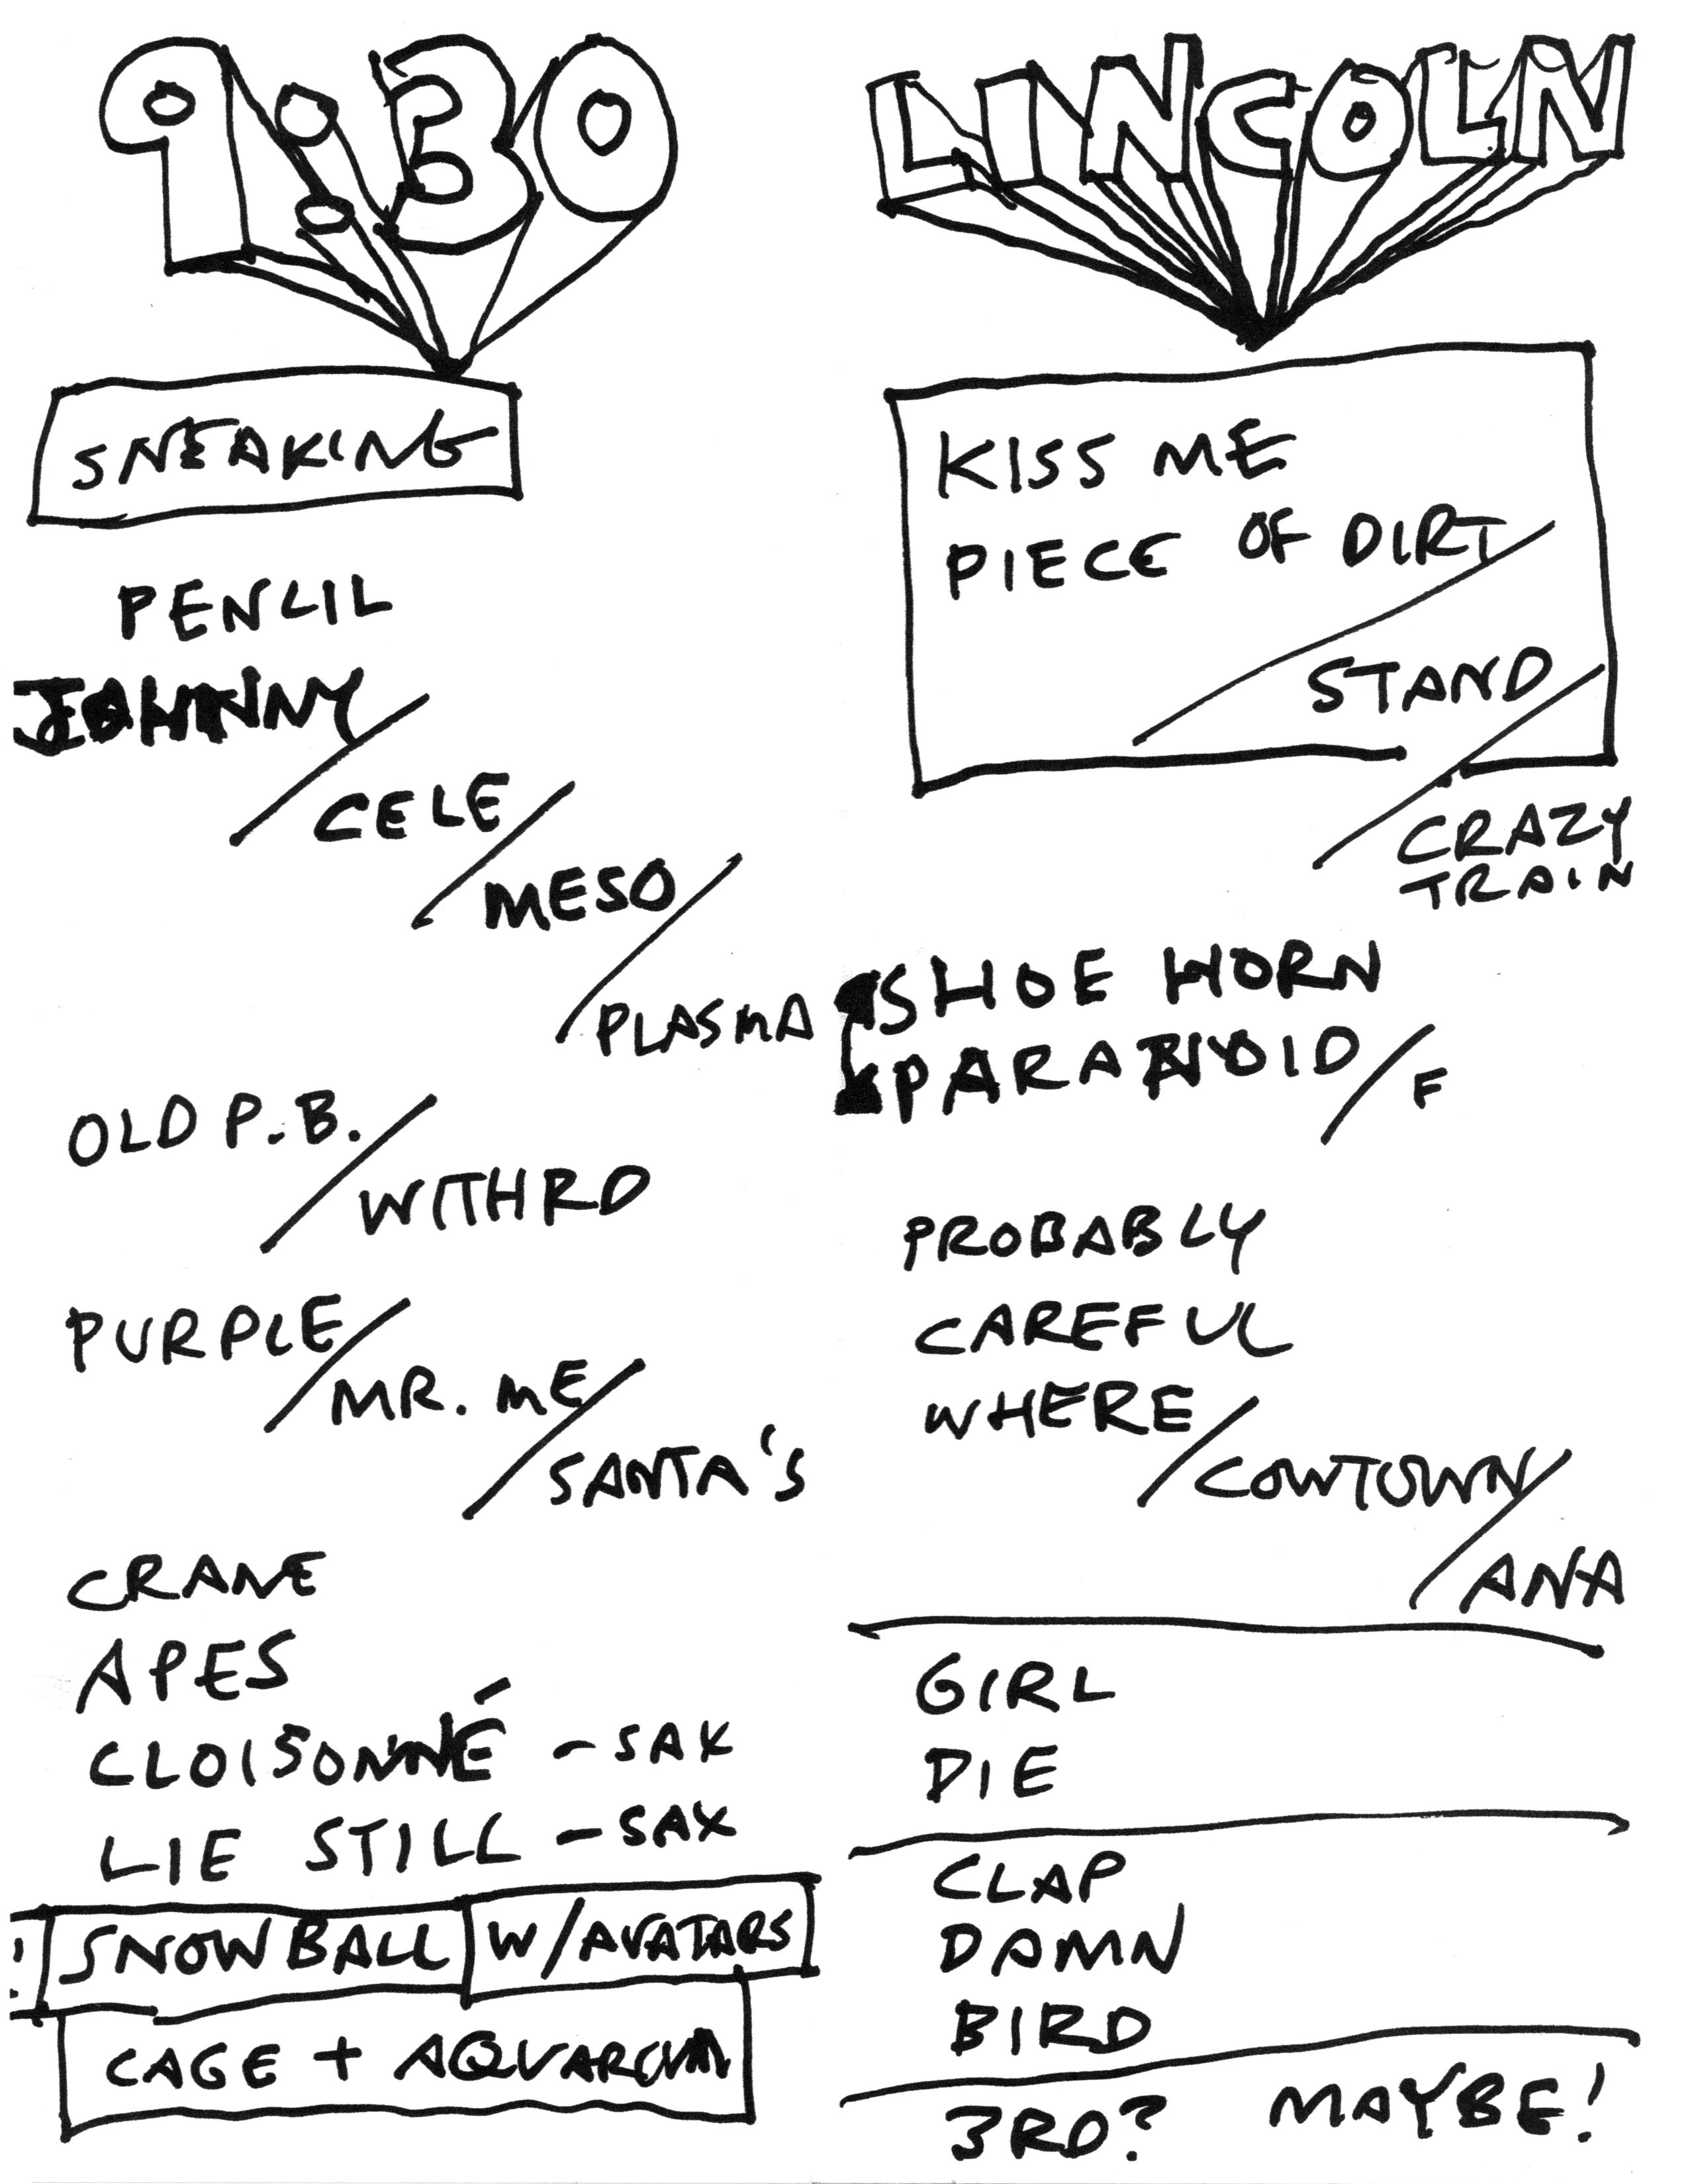 9:30
SNEAKING
PENCIL
JOHNNY/
CELE/
MESO/
PLASMA
OLD P.B./
WITHRD
PURPLE/
MR. ME/
SANTA'S
CRANE
APES
CLOISONNÉ - SAX
LIE STILL - SAX
SNOWBALL W/AVATARS
CAGE + AQUARIUM
LINCOLN
KISS ME
PIECE OF DIRT/
STAND/
CRAZY
TRAIN
SHOE HORN
PARANOID/
F
PROBABLY
CAREFUL
WHERE/
COWTOWN/
ANA
GIRL
DIE
CLAP
DAMN
BIRD
3RD? MAYBE!